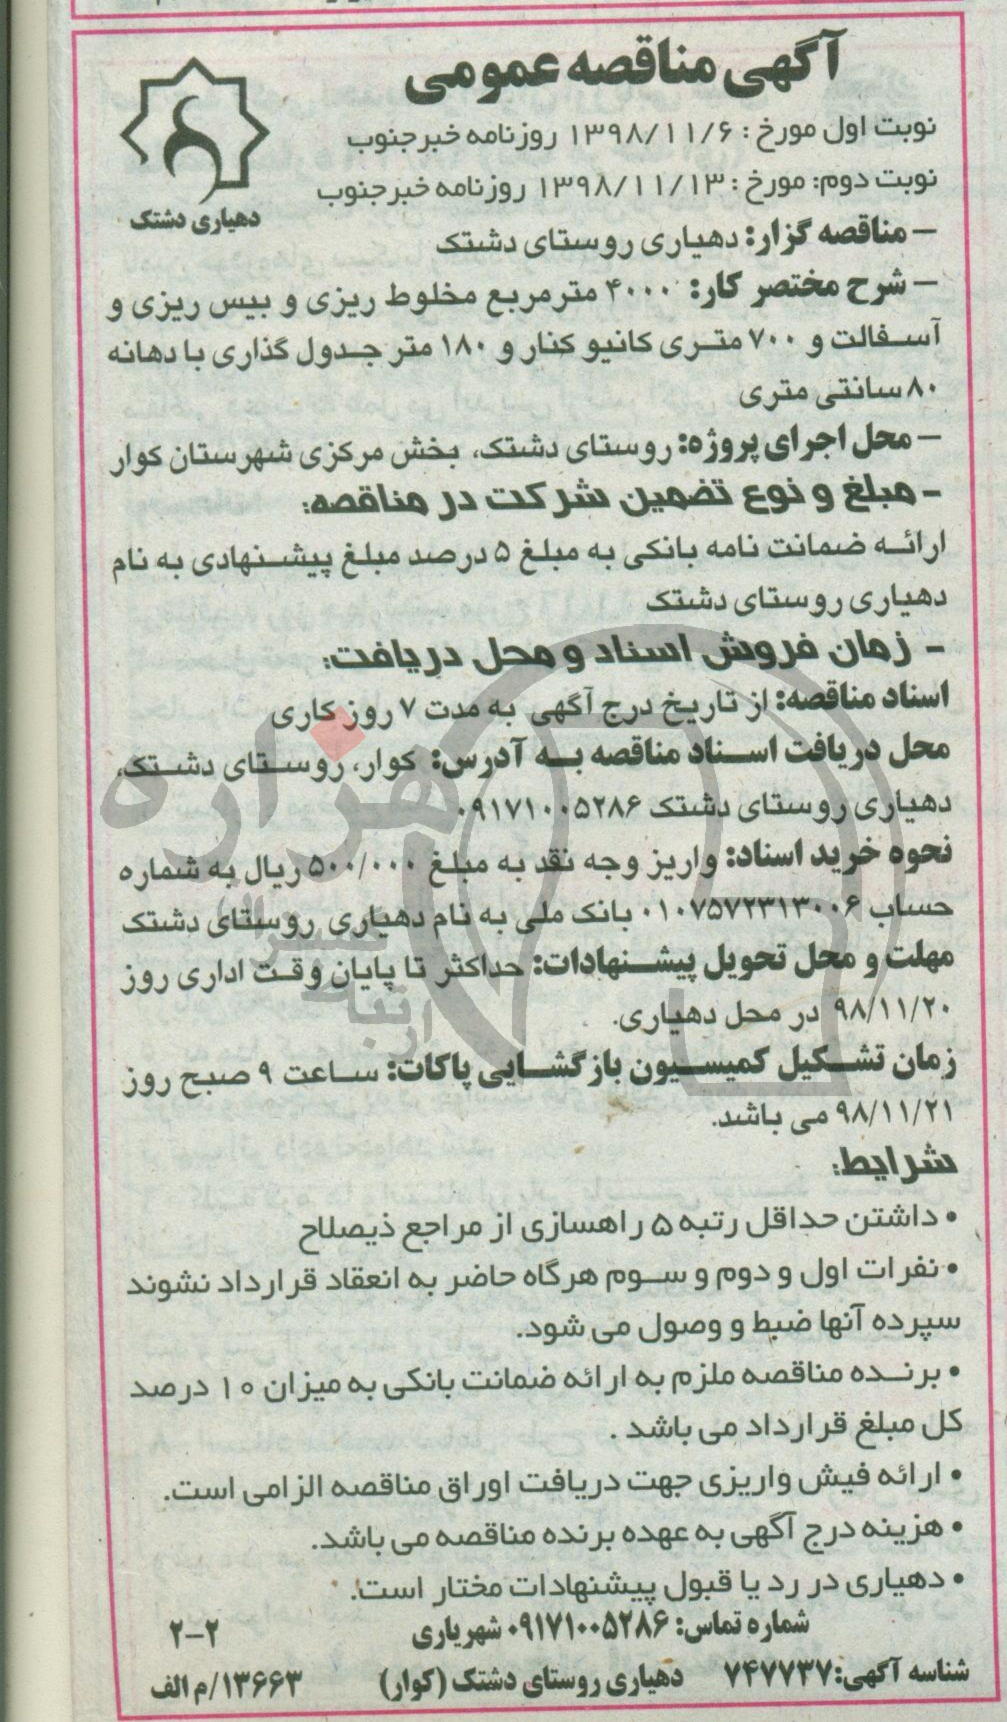 آگهی مناقصه عمومی
نوبت اول مورخ: ۱۳۹۸/۱۱/۶ روزنامه خبرجنوب
نوبت دوم: مورخ: ۱۳۹۸/۱۱/۱۳ روزنامه خبرجنوب
دهیاری دشتک
– مناقصه گزار: دهیاری روستای دشتک
– شرح مختصر کار: ۴۰۰۰ مترمربع مخلوط ریزی و بیس ریزی و
آسفالت و ۷۰۰ متری کانیو کنار و ۱۸۰ متر جدول گذاری با دهانه
۸۰ سانتی متری
– محل اجرای پروژه: روستای دشتک، بخش مرکزی شهرستان کوار
– مبلغ و نوع تضمین شرکت در مناقصه:
ارائه ضمانت نامه بانکی به مبلغ ۵ درصد مبلغ پیشنهادی به نام
دهیاری روستای دشتک
– زمان فروش اسناد و محل دریافت:
اسناد مناقصه: از تاریخ درج آگهی به مدت ۷ روز کاری
محل دریافت اسناد مناقصه به آدرس: کوار، روستای دشتک،
دهیاری روستای دشتک ۰۹۱۷۱۰۰۵۲۸۶
نحوه خرید اسناد: واریز وجه نقد به مبلغ ۵۰۰/۰۰۰ ریال به شماره
حساب ۰۱۰۷۵۷۲۳۱۳۰۰۶ بانک ملی به نام دهیاری روستای دشتک
مهلت و محل تحویل پیشنهادات: حداکثر تا پایان وقت اداری روز
۹۸/۱۱/۲۰ در محل دهیاری.
زمان تشکیل کمیسیون بازگشایی پاکات: ساعت ۹ صبح روز
۹۸/۱۱/۲۱ می باشد.
شرایط:
• داشتن حداقل رتبه ۵ راهسازی از مراجع ذیصلاح
• نفرات اول و دوم و سوم هرگاه حاضر به انعقاد قرارداد نشوند
سپرده آنها ضبط و وصول می شود.
• برنده مناقصه ملزم به ارائه ضمانت بانکی به میزان ۱۰ درصد
کل مبلغ قرارداد می باشد .
• ارائه فیش واریزی جهت دریافت اوراق مناقصه الزامی است.
• هزینه درج آگهی به عهده برنده مناقصه می باشد.
• دهیاری در رد یا قبول پیشنهادات مختار است.
شماره تماس: ۰۹۱۷۱۰۰۵۲۸۶ شهریاری
۲–۲
شناسه آگهی: ۷۴۷۷۳۷ دهیاری روستای دشتک (کوار) ۱۳۶۶۳/م الف
هزاره